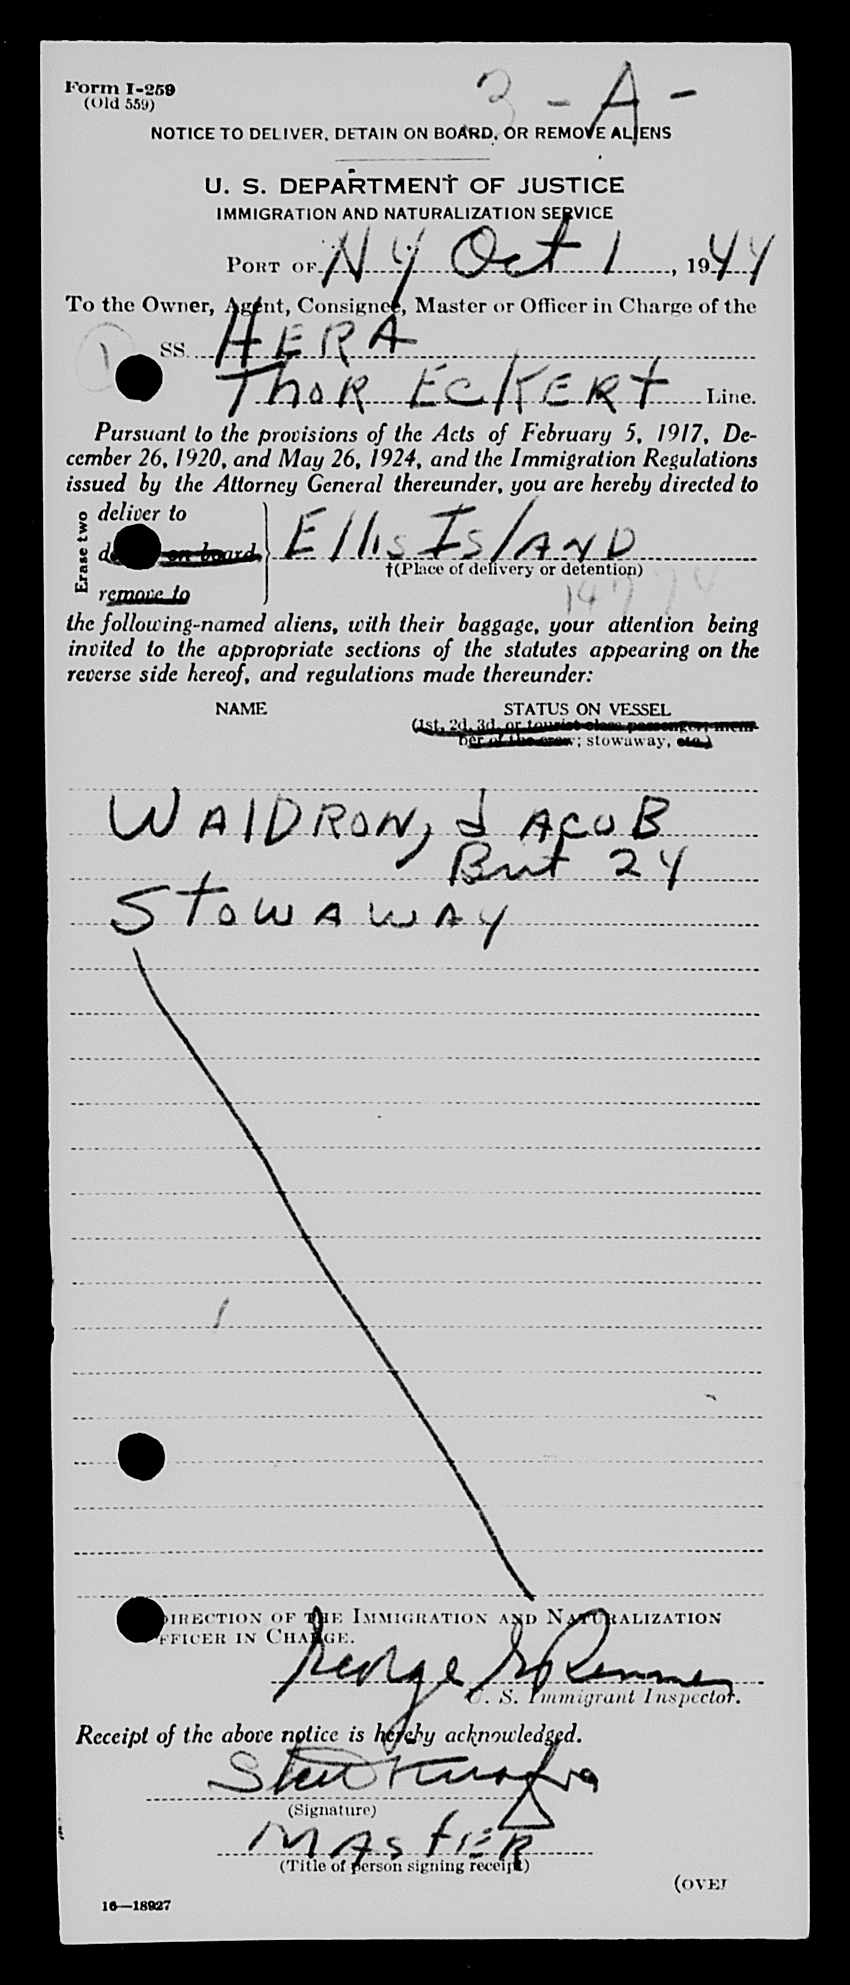 Form I-259
(Old 559)
3 - A -
NOTICE TO DELIVER, DETAIN ON BOARD, OR REMOVE ALIENS
U. S. DEPARTMENT OF JUSTICE
IMMIGRATION AND NATURALIZATION SERVICE
PORT OF NY Oct 1, 1944
To the Owner, Agent, Consignee, Master or Officer in Charge of the
1 SS. HERA
THOR ECKERT Line.
Pursuant to the provisions of the Acts of February 5, 1917, De-
cember 26, 1920, and May 26, 1924, and the Immigration Regulations
issued by the Attorney General thereunder, you are hereby directed to
Erase two
deliver to
on board
remove to
Ellis Island
†(Place of delivery or detention)
the following-named aliens, with their baggage, your attention being
invited to the appropriate sections of the statutes appearing on the
reverse side hereof, and regulations made thereunder:
NAME STATUS ON VESSEL
(1st, 2d, 3d, or tourist class passenger; mem-
ber of the crew; stowaway, etc.)
WALDRON, JACOB
Brit 24
STOWAWAY
DIRECTION OF THE IMMIGRATION AND NATURALIZATION
OFFICER IN CHARGE.
George
U. S. Immigrant Inspector.
Receipt of the above notice is hereby acknowledged.
(Signature)
MASTER
(Title of person signing receipt)
(OVER
16—18927